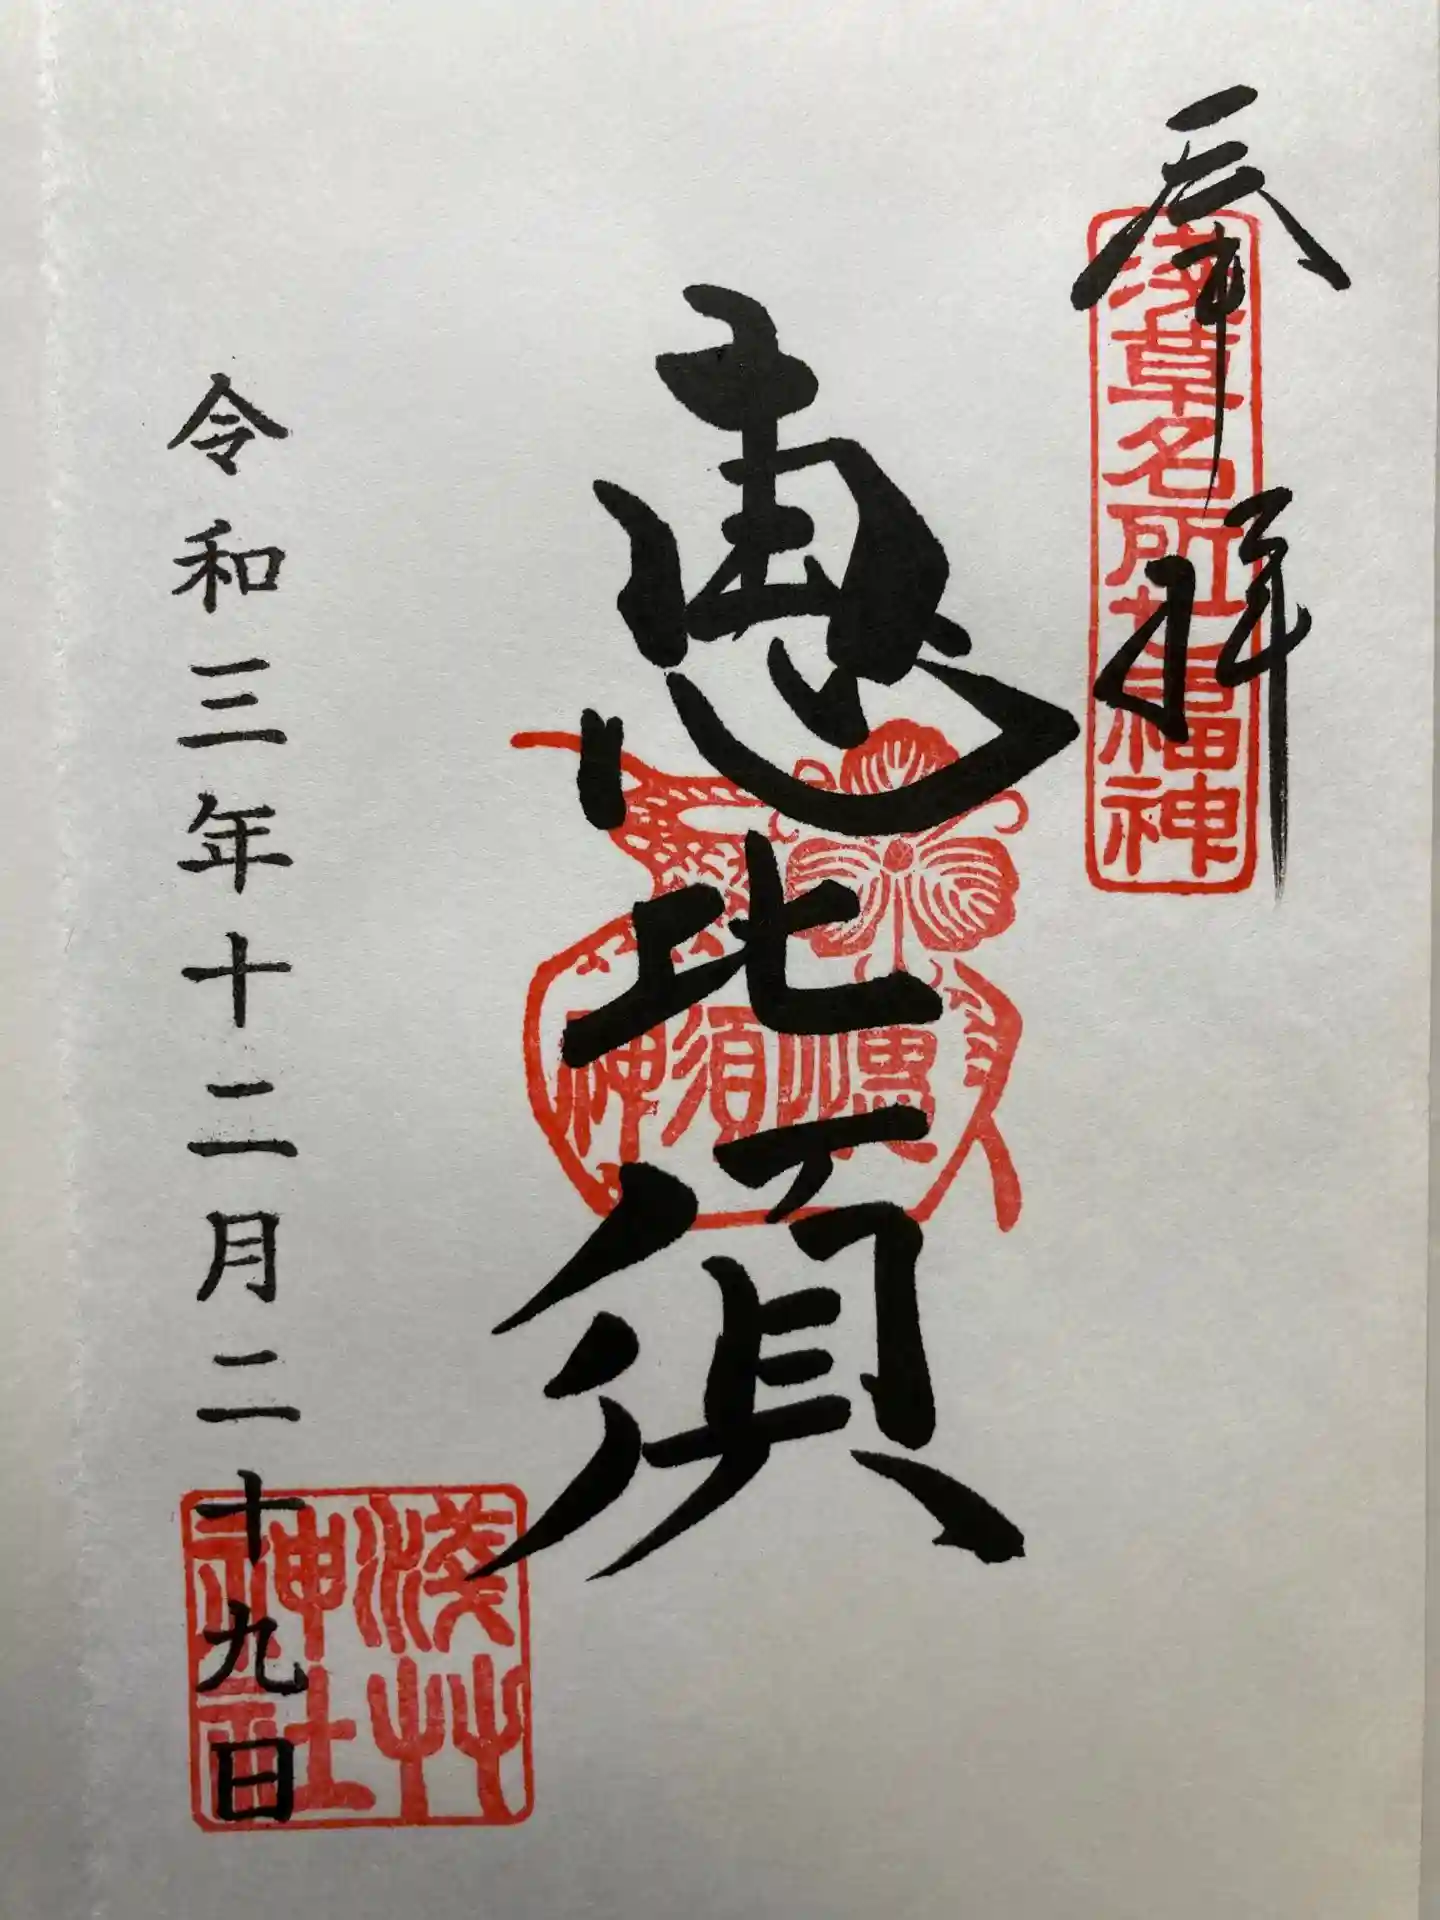 奉拝
浅草名所七福神
恵比須
恵比須神
令和三年十二月二十九日
淺艸神社